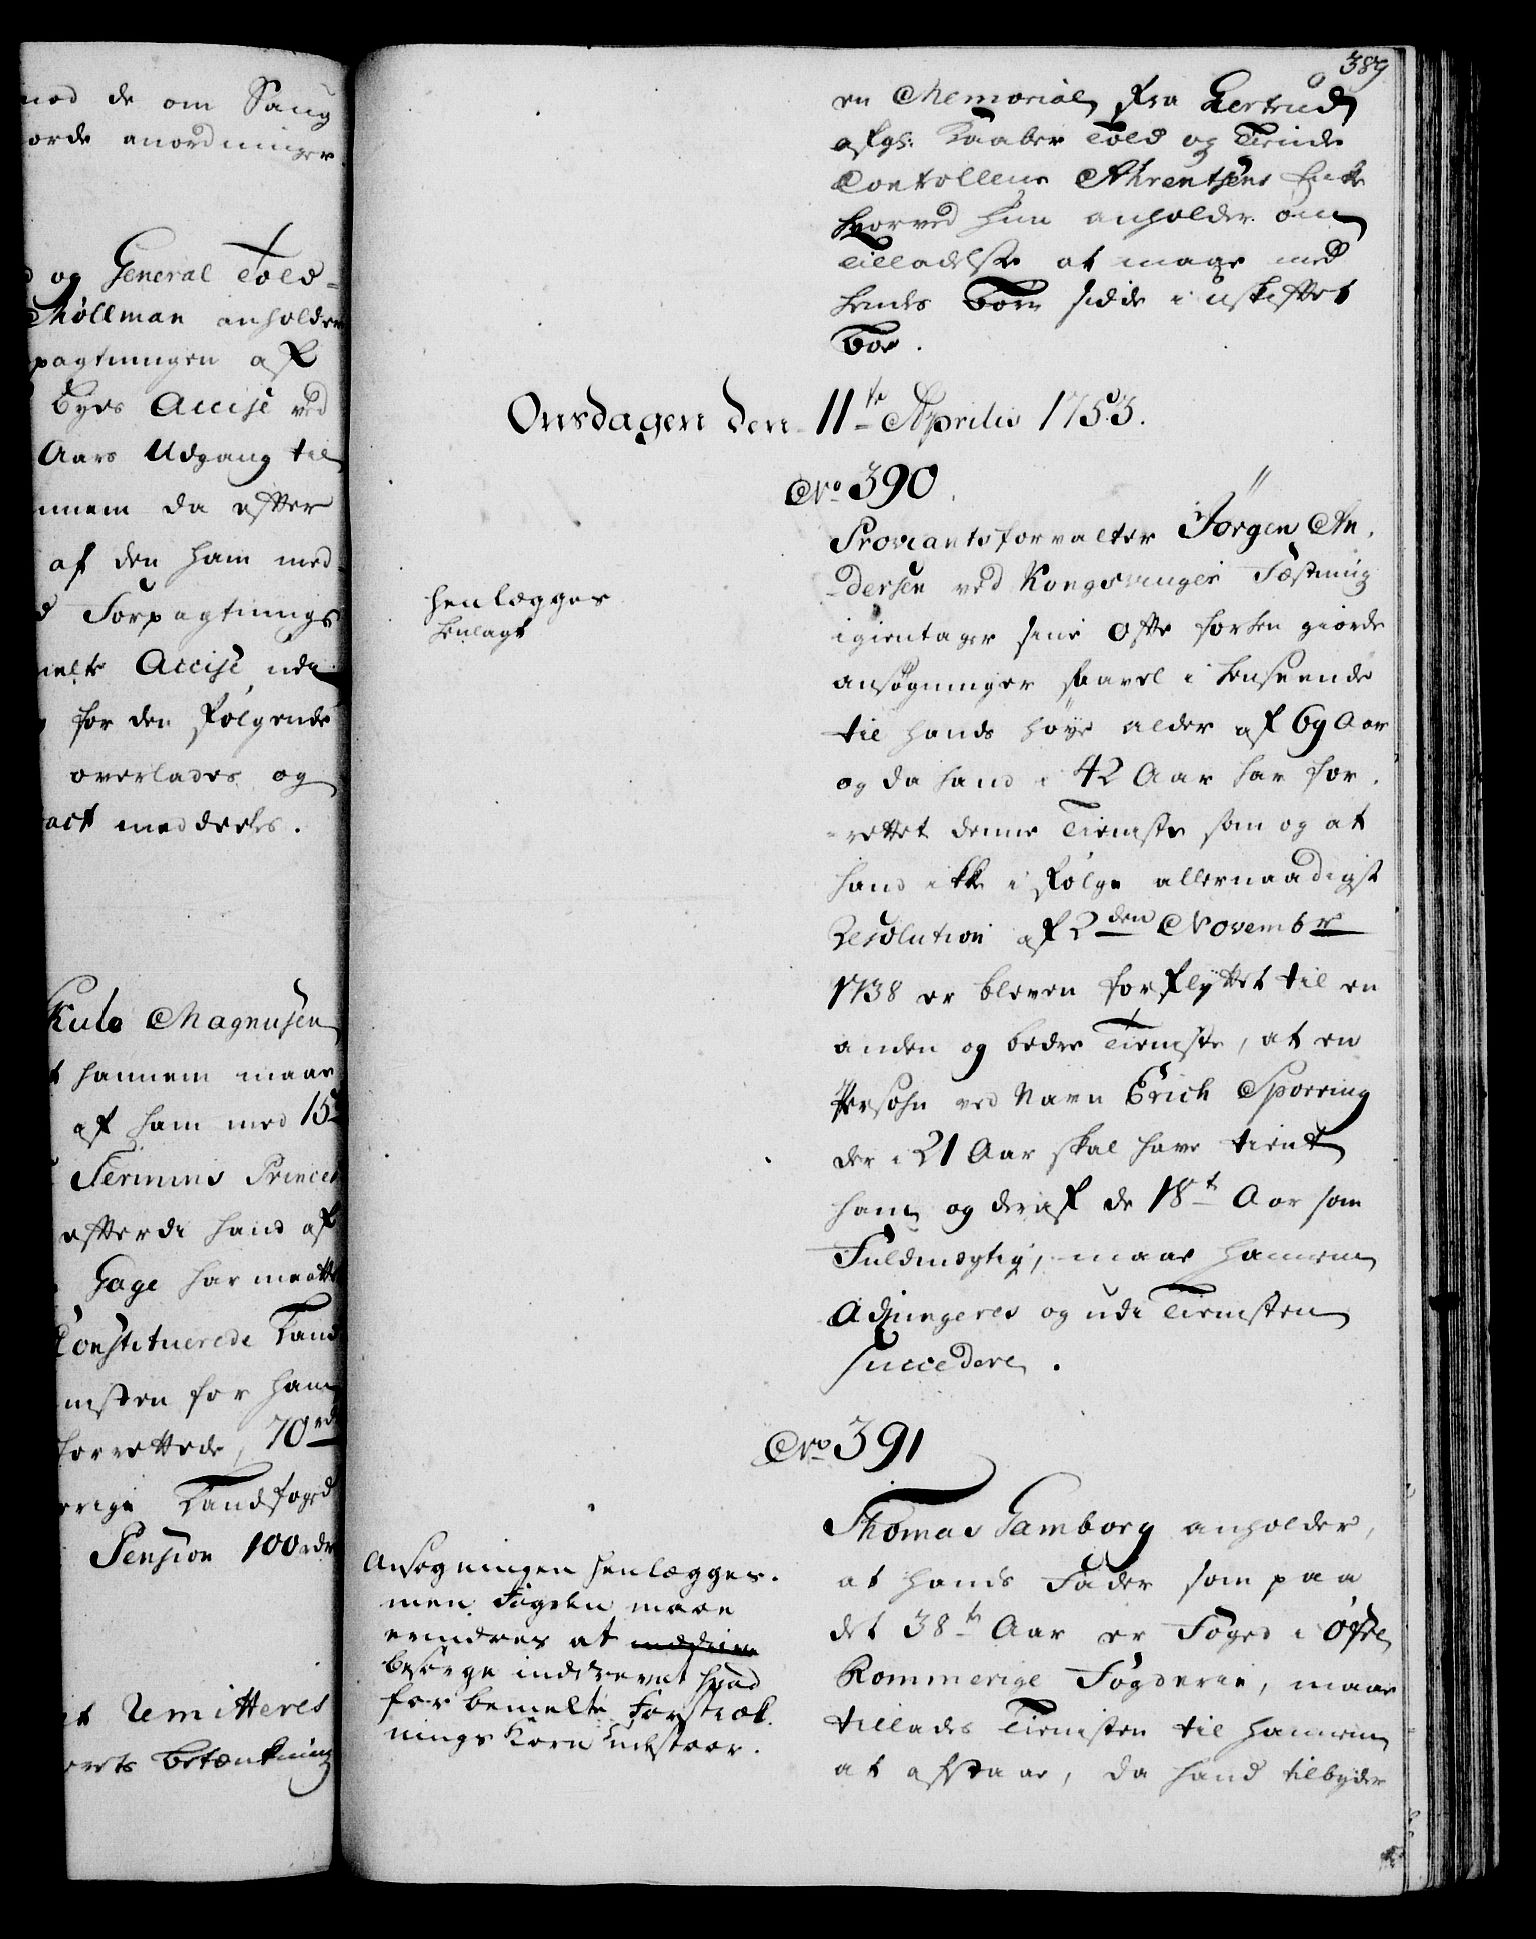 nod de om Saug
orde anordninger
og General Told-
Møllman anholder
pagtningen af
Byes Accise ved
Aars Udgang til
nnem da efter
af den ham med
Forpagtnings
melte Accise udi
for den følgende
overlades og
act meddeeles.
Skule Magnusen
hannem maae
af ham med 15
Terminis Princes
efterdi hand af
Gage har maatte
Constituerede Land
nisten for ham
forrettede, 70 rd
rrige Landfoged
Pension 100 rdr
et Remitteres
orets betænkning
389
en Memorial fra Gertrud
afgl: Kaaber Told og Tiende
Controlleur Ahrentsens Enke
hvorved hun anholder om
Tilladelse at maae med
hendes Børn sidde i uskiftet
Boe.
Onsdagen den 11te Aprilis 1753.
No 390
Proviantsforvalter Jørgen An-
dersen ved Kongsvinger Fæstning
igientager sine ofte forhen giorde
ansøgninger saavel i henseende
til hands høye alder af 69 Aar
og da hand i 42 Aar har for-
rettet denne Tieniste som og at
hand ikke i følge allernaadigst
Resolution af 2den Novembr
1738 er bleven forflyttet til en
anden og bedre Tieniste, at en
Persohn ved Navn Erich Sporring
der i 21 Aar skal have tient
ham og deraf de 18t Aar som
Fuldmægtig, maae hannem
Adjungeres og udi Tienisten
succedere.
henlægges
henlagt
No 391
Thomas Gamborg anholder,
at hands Fader som paa
det 38te Aar er Foged i Øfre
Rommerige Fogderie, maae
tillades Tienisten til hannem
at afstaae, da hand tilbyder
Ansøgningen henlægges.
men Fogden maae
erindres at
besørge inddrevet hvad
for bemelte Forstræk-
nings Korn Indestaar.